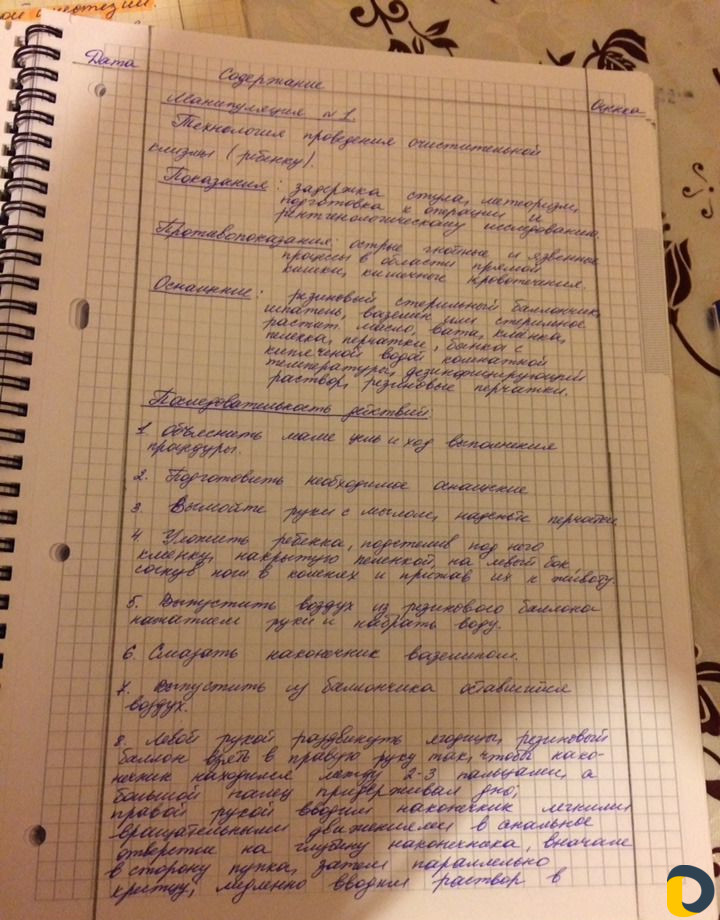 ой
Дата
Содержание
Оценка
Манипуляция № 1.
Технология проведения очистительной
клизмы (ребенку).
Показания: задержка стула, метеоризм,
подготовка к операции и
рентгенологическому исследованию.
Противопоказания: острые гнойные и язвенные
процессы в области прямой
кишки, кишечное кровотечение.
Оснащение: резиновый стерильный баллончик,
шпатель, вазелин или стерильное
растит. масло, вата, клеёнка,
пеленка, перчатки, банка с
кипяченой водой комнатной
температуры, дезинфицирующий
раствор, резиновые перчатки.
Последовательность действий:
1. Объяснить маме цель и ход выполнения
процедуры.
2. Подготовить необходимое оснащение
3. Вымойте руки с мылом, наденьте перчатки
4 Уложить ребенка, подстелив под него
клеенку, накрытую пеленкой, на левый бок
согнув ноги в коленях и прижав их к животу.
5. Выпустить воздух из резинового баллона
нажатием руки и набрать воду.
6. Смазать наконечник вазелином.
7. Выпустить из баллончика оставшийся
воздух.
8. Левой рукой раздвинуть ягодицы, резиновый
баллон взять в правую руку так, чтобы нако-
нечник находился между 2-3 пальцами, а
большой палец придерживал дно;
правой рукой вводим наконечник легкими
вращательными движениями в анальное
отверстие на глубину наконечника, вначале
в сторону пупка, затем параллельно
крестцу; медленно вводим раствор в